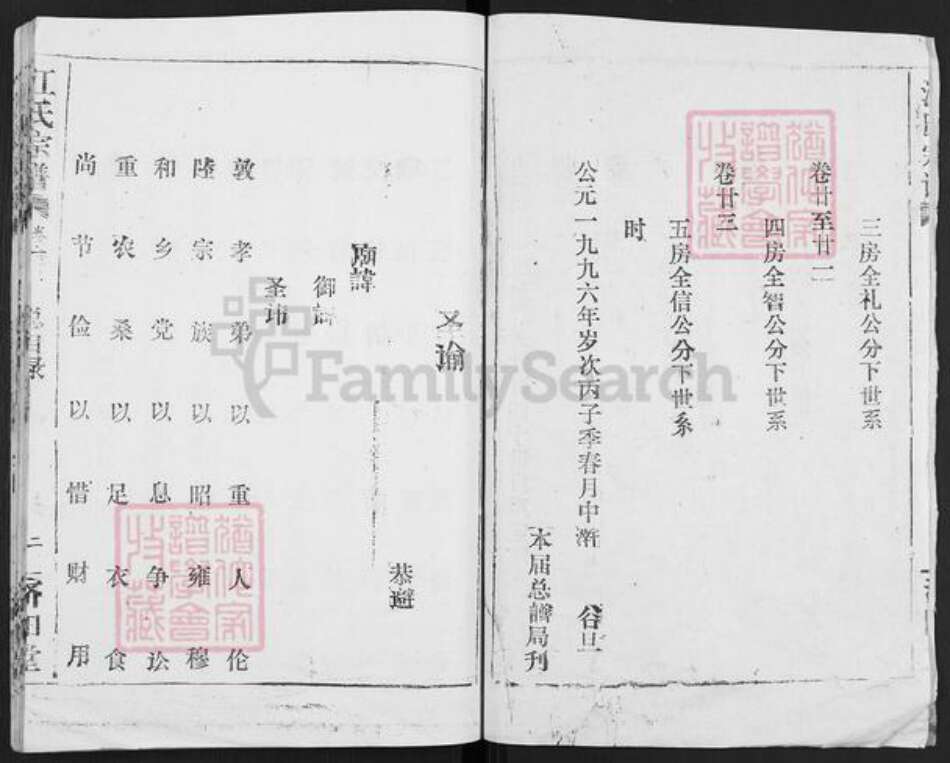 三房全礼公分下世系
卷廿至廿二
四房全智公分下世系
卷廿三
五房全信公分下世系
时
公元一九九六年岁次丙子季春月中澣 谷旦
本届总谱局刊
圣谕
恭避
廟諱
御讳
圣讳
敦孝弟以重人伦
睦宗族以昭雍穆
和乡党以息争讼
重农桑以足衣食
尚节俭以惜财用
江氏宗譜
总目录
二
济阳堂
猶他家譜學會收藏
猶他家譜學會收藏
FamilySearch